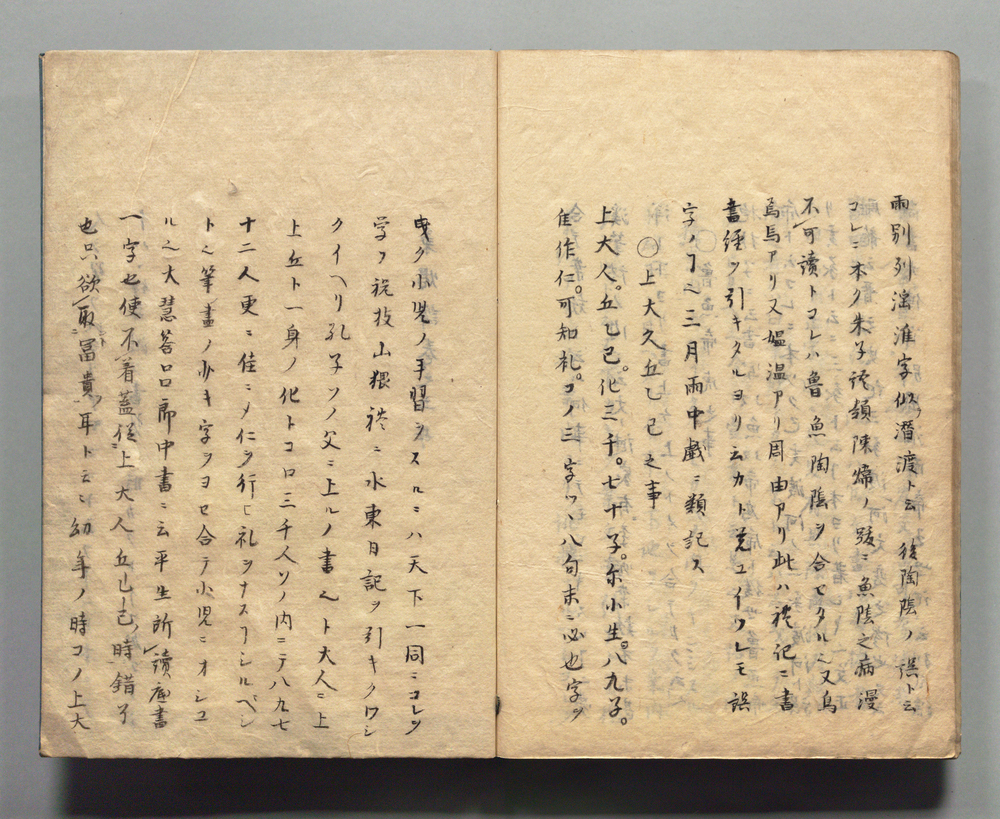 雨別列淮字似潜渡ト云後陶陰ノ誤ト云
コレニ本ク朱子陳ノ跋ニ魚陰之病漫
不可讀トコレハ魯魚陶陰ヲ合セタル又烏
焉馬アリ又媼温アリ周由アリ此ハ禮記ニ書
書經ヲ引キタルヨリ云カト覚ユイツレモ誤
字ノフ三月雨中戯ニ類記ス
○上大久丘乙巳之事
上大人。丘乙已。化三千。七十子。尓小生。八九子。
佳作仁。可知礼。コノ三字ツヽ八句末ニ必也字ヲ
曵ク小児ノ手習シスルニハ天下一同ニコレヲ
学フ祝枝山猥ニ水東日記ヲ引キクワシ
クイヘリ孔子ソノ父ニ上ルノ書ト大人ニ上
上丘ト一身ノ化トコロ三千人ソノ内ニテ八九七
十二人更ニ佳ニメ仁ヲ行ヒ礼ヲナスフシルベシ
ト筆畫ノ少キ字ヲヨセ合テ小児ニオシユ
ル大慧答呂郎中書ニ云平生所讀底書
一字也使不着蓋従上大人丘乙己時錯了
也只欲取冨貴耳ト云ニ幼年ノ時コノ上大